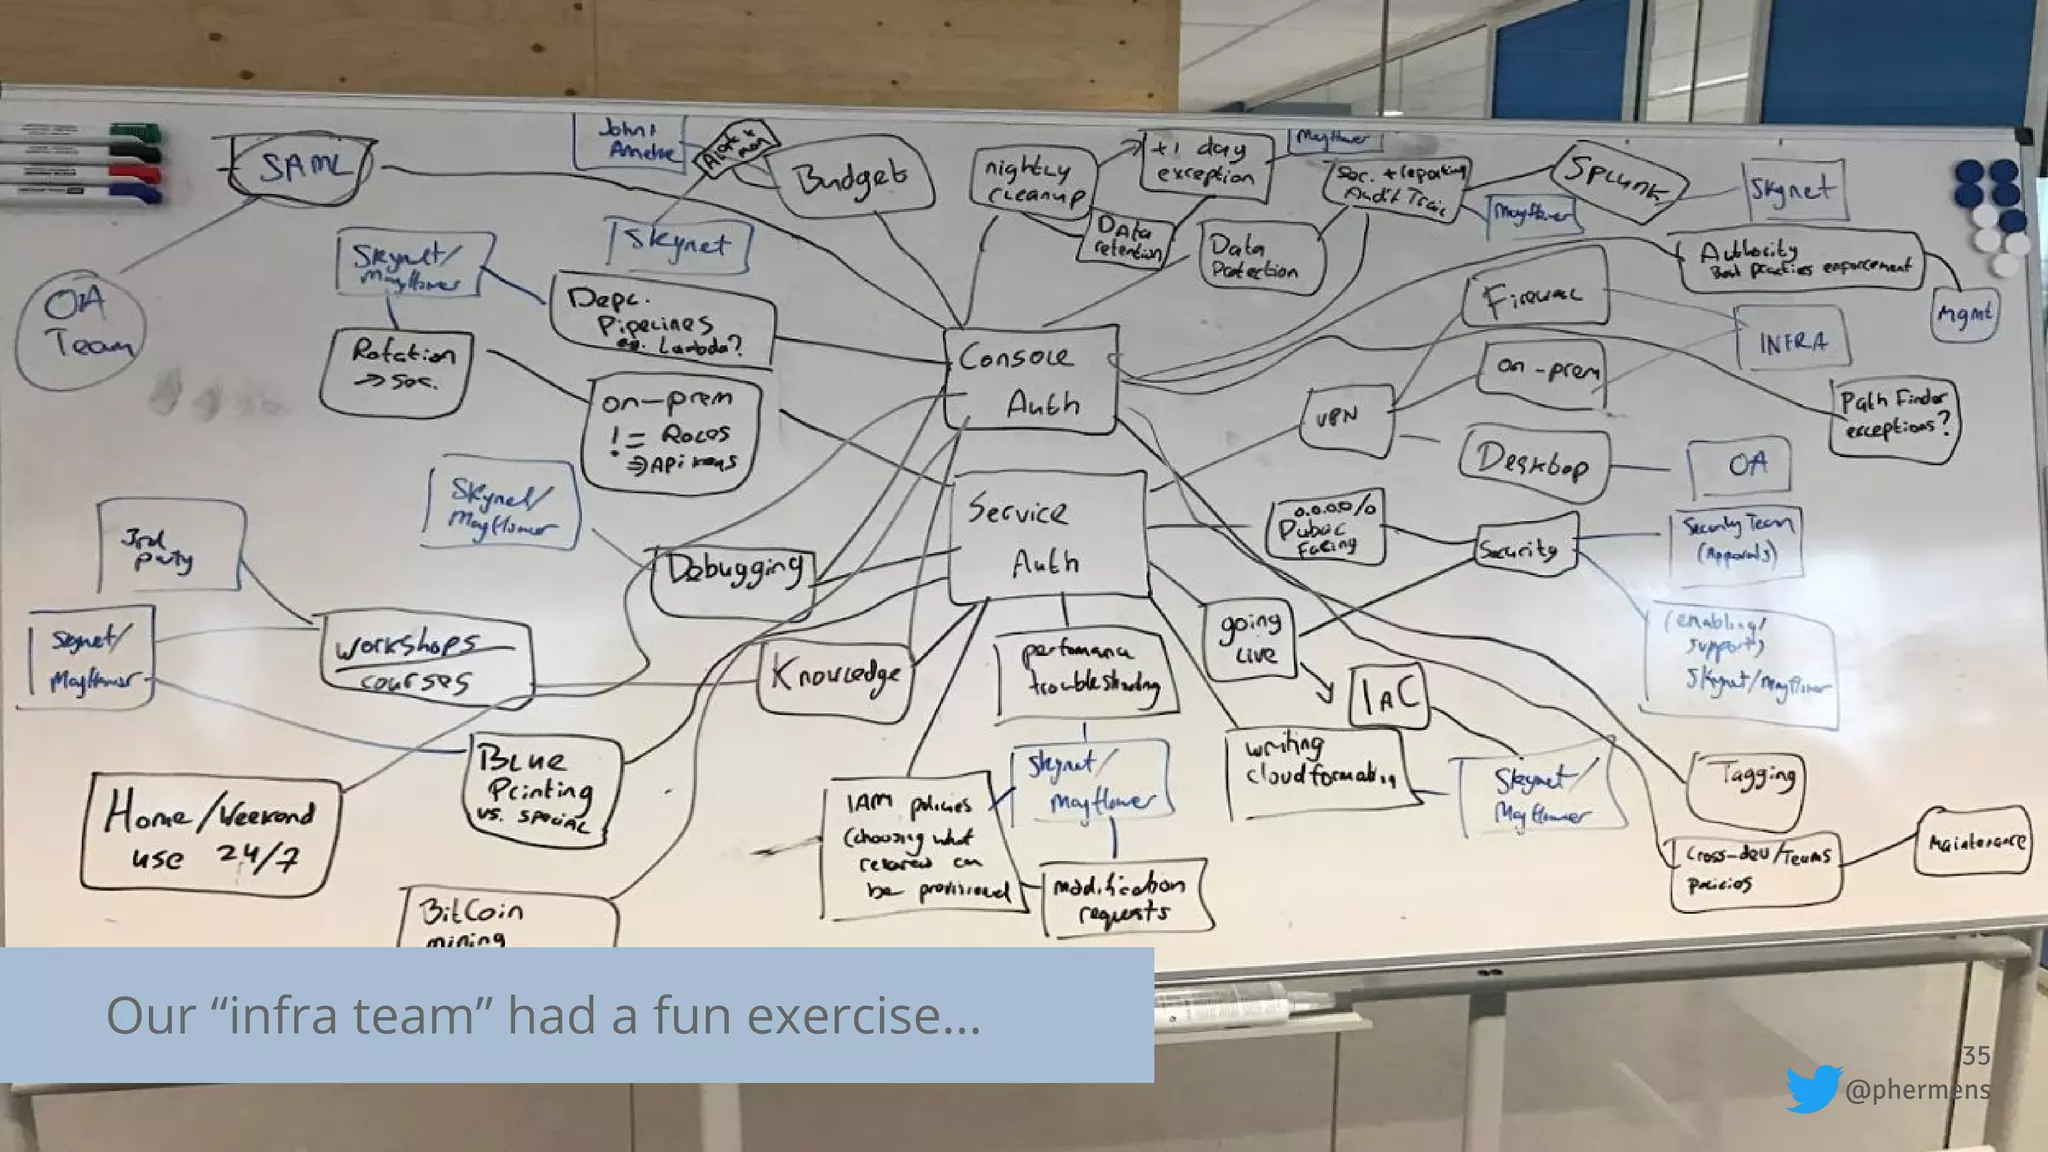 SAML
John &
Budget
nightly
cleanup
+1 day
exception
Mayflower
Soc. + reporting
Audit Trail
Splunk
Skynet
Mayflower
Data
retention
Data
Protection
Skynet
Skynet/
Mayflower
OA
Team
Authority
Best practices enforcement
Mgmt
Firewall
INFRA
Depl.
Pipelines
eg. Lambda?
Rotation
→ Soc.
on-prem
!= Roles
⇒ API keys
Console
Auth
on-prem
VPN
Path Finder
exceptions?
Desktop
OA
Skynet/
Mayflower
Service
Auth
0.0.0.0/0
Public
Facing
Security
Security Team
(Approvals)
3rd
party
Debugging
Skynet/
Mayflower
workshops
courses
Knowledge
performance
troubleshooting
going
live
IAC
(enabling/
support)
Skynet/Mayflower
Blue
Printing
vs. special
Home/Weekend
use 24/7
Skynet/
Mayflower
writing
cloudformation
Skynet/
Mayflower
Tagging
IAM policies
(choosing what
can
be provisioned
modification
requests
Cross-dev/Teams
policies
Maintenance
BitCoin
mining
Our “infra team” had a fun exercise...
35
@phermens